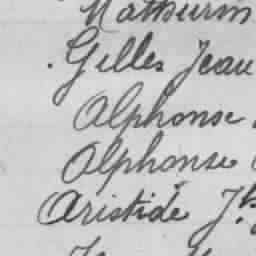 Mathurin
Gilles Jean
Alphonse
Alphonse
Aristide Jh